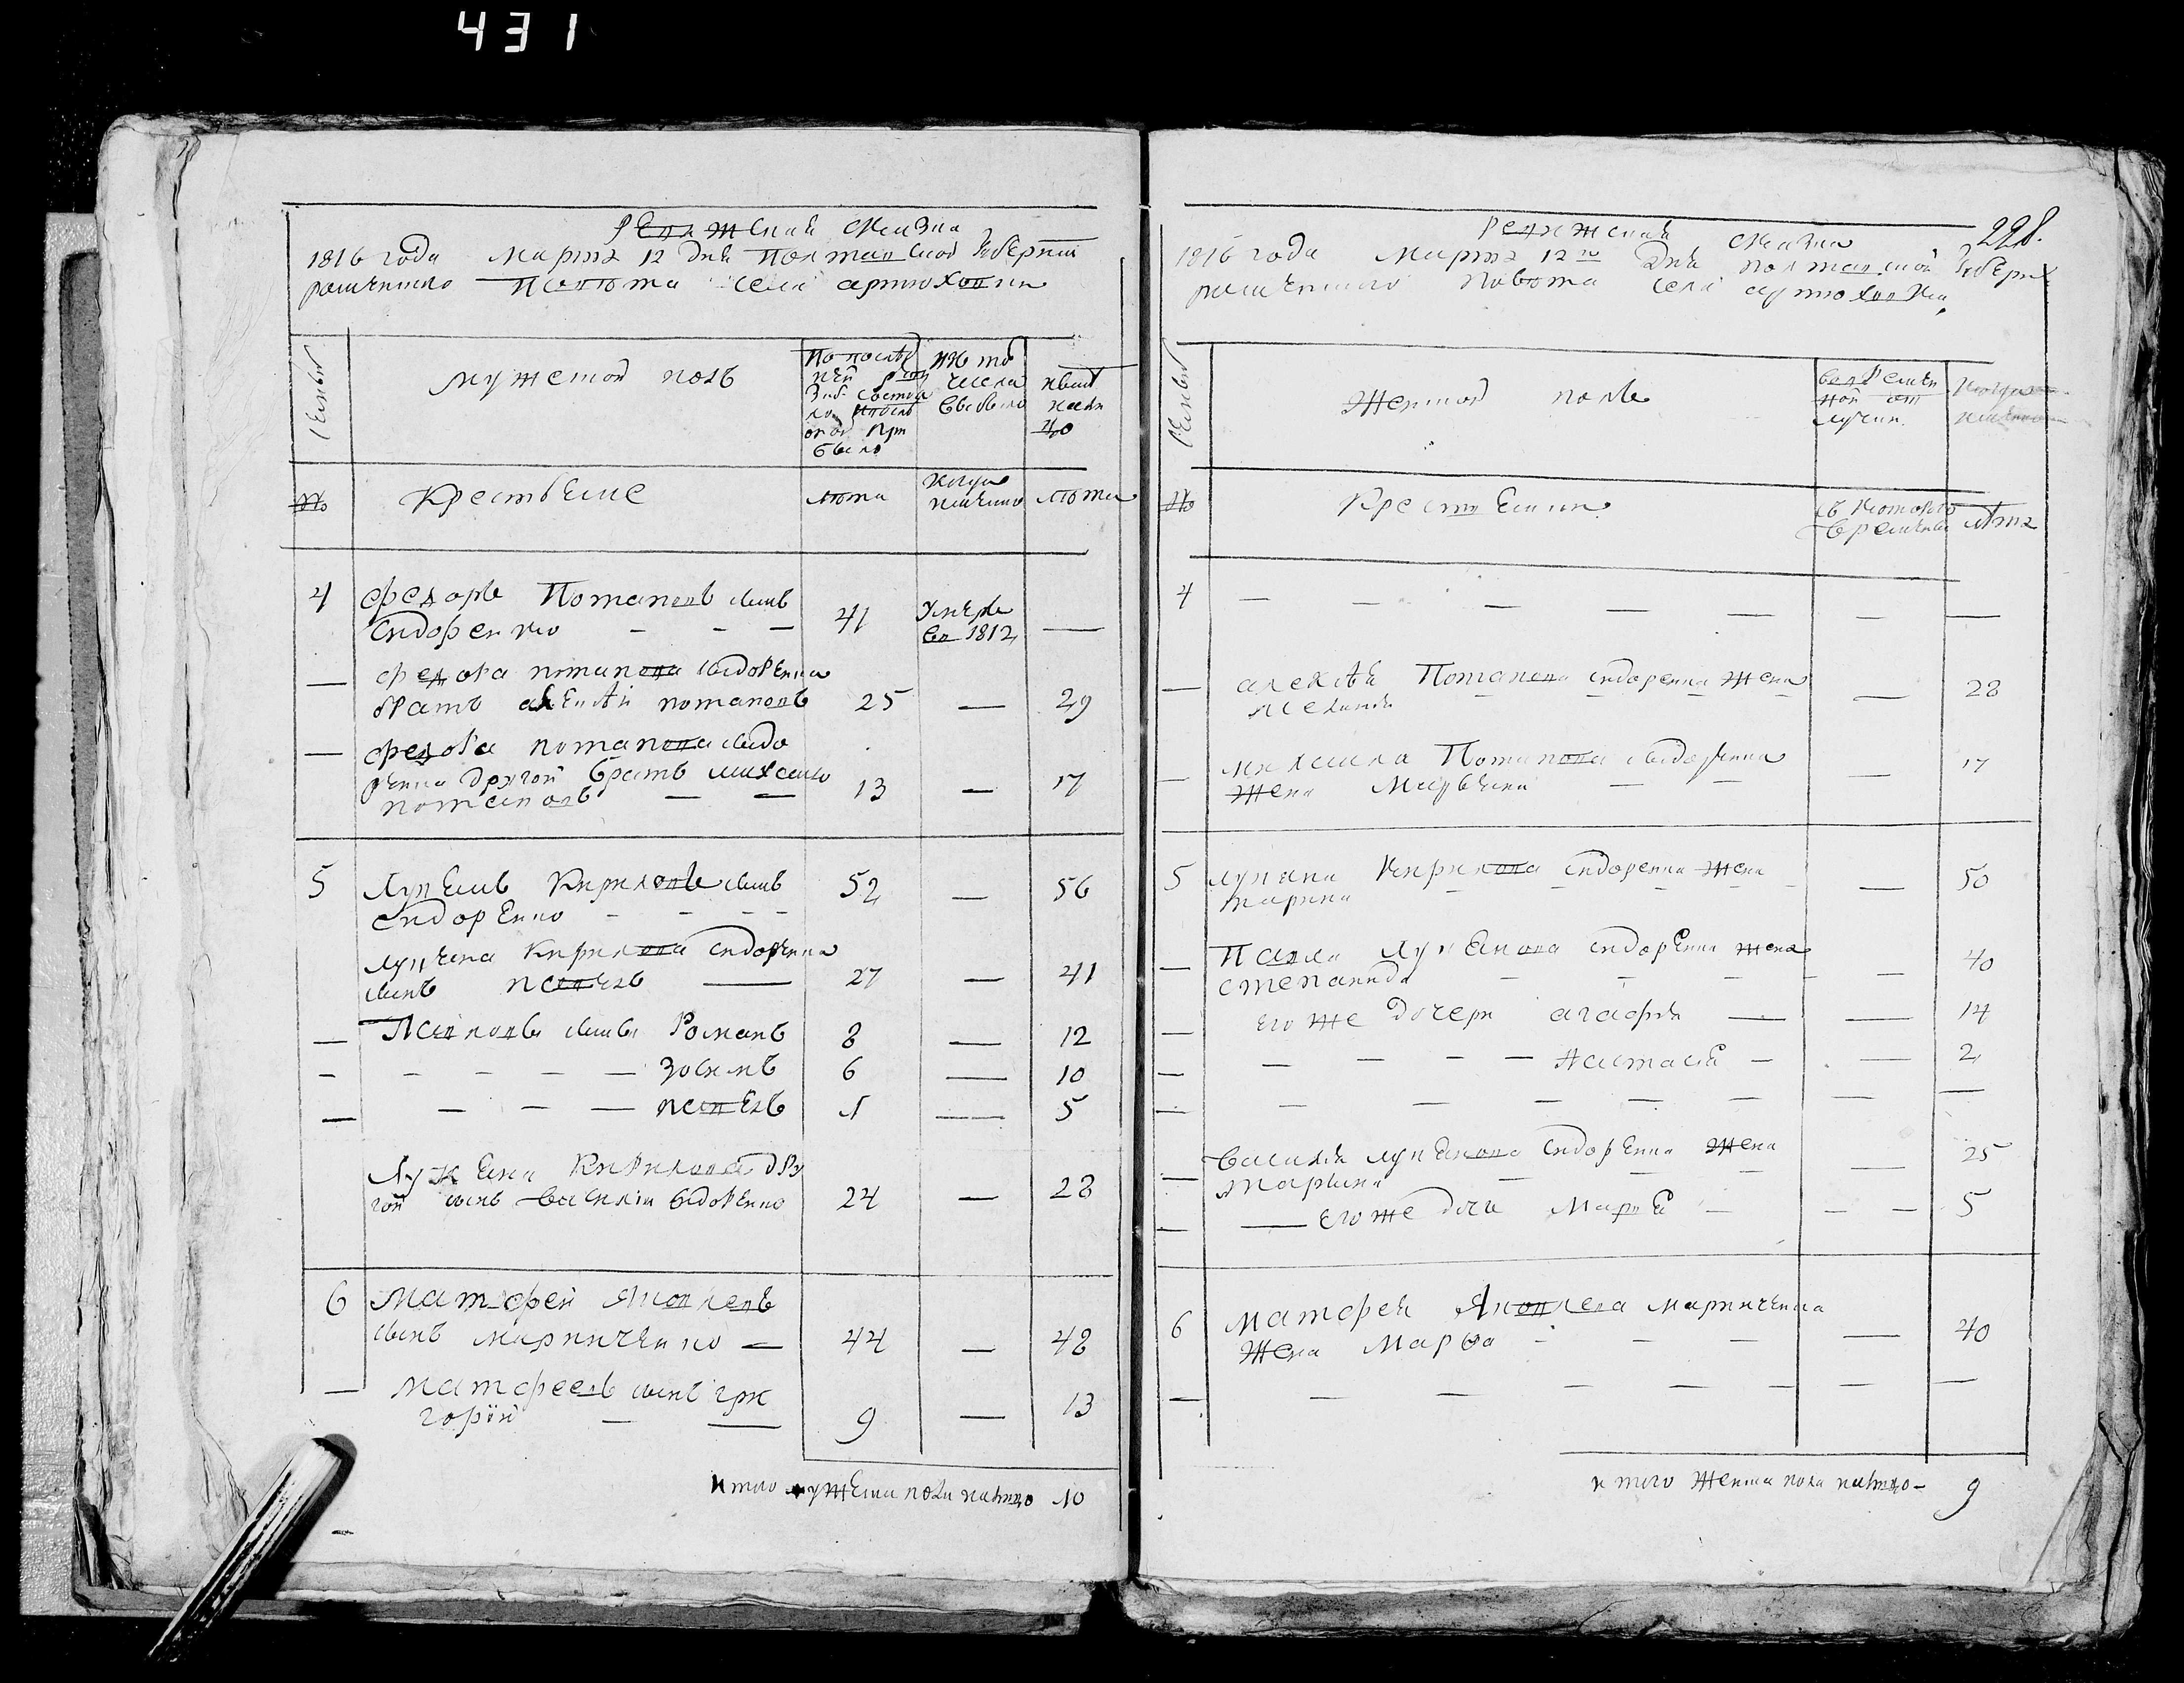 431
Ревижская скаска
1816 года марта 12 дня Полтавской губернии
роменского повета села артюховки
семьи
мужеской полъ
По послед
ней реви
зіи состоя
ло и после
оной при
было
изъ то
числа
выбыло
ныне
на ли
цо
№
Крестьяне
лета
когда
имянно
лета
4
федоръ Потаповъ сынъ
сидоренко - - -
41
умеръ
въ 1812
—
— федора потапова сидоренка
братъ алексей потаповъ
25 — 29
— федора потапова сидо
ренка другой братъ михаило
потаповъ — —
13 — 17
5
Лукьянъ Кириловъ сынъ
сидоренко - - - -
52 — 56
лукьяна Кирилова сидоренка
сынъ павелъ —
27 — 41
— Павловы сыны Романъ 8 — 12
- - - - - зосимъ 6 — 10
— — — — павелъ 1 — 5
Лукьяна Кирилова дру
гой сынъ василій сидоренко 24 — 28
6
Матфей Яковлевъ
сынъ маринченко — 44 — 48
— матфеевъ сынъ гри
горий — — 9 — 13
итого мужеска пола налицо 10
228.
Ревижская скаска
1816 года марта 12го дня полтавской губерни
роменского повета села артюховки
семьи
Женской полъ
во временн
ной от
лучки
№
Крестьянки
съ которого
времени
лета
4 — — — — — — —
— алексея Потапова сидоренка жена
— 28
— михаила Потапова сидоренка
жена — — 17
5 лукяна Кирилова сидоренка жена
марина — 50
— Павла Лукянова сидоренка жена
степанида — 40
— его же дочери агафия — — 14
— — — — — настасия — — 2
— — — — — — — —
— василия лукянова сидоренка жена
марина — 25
— — его же дочь мария — — — 5
6 матфея Яковлева маринченка
жена Марѳа - — — — 40
— — — — — — —
итого женска пола налицо - 9